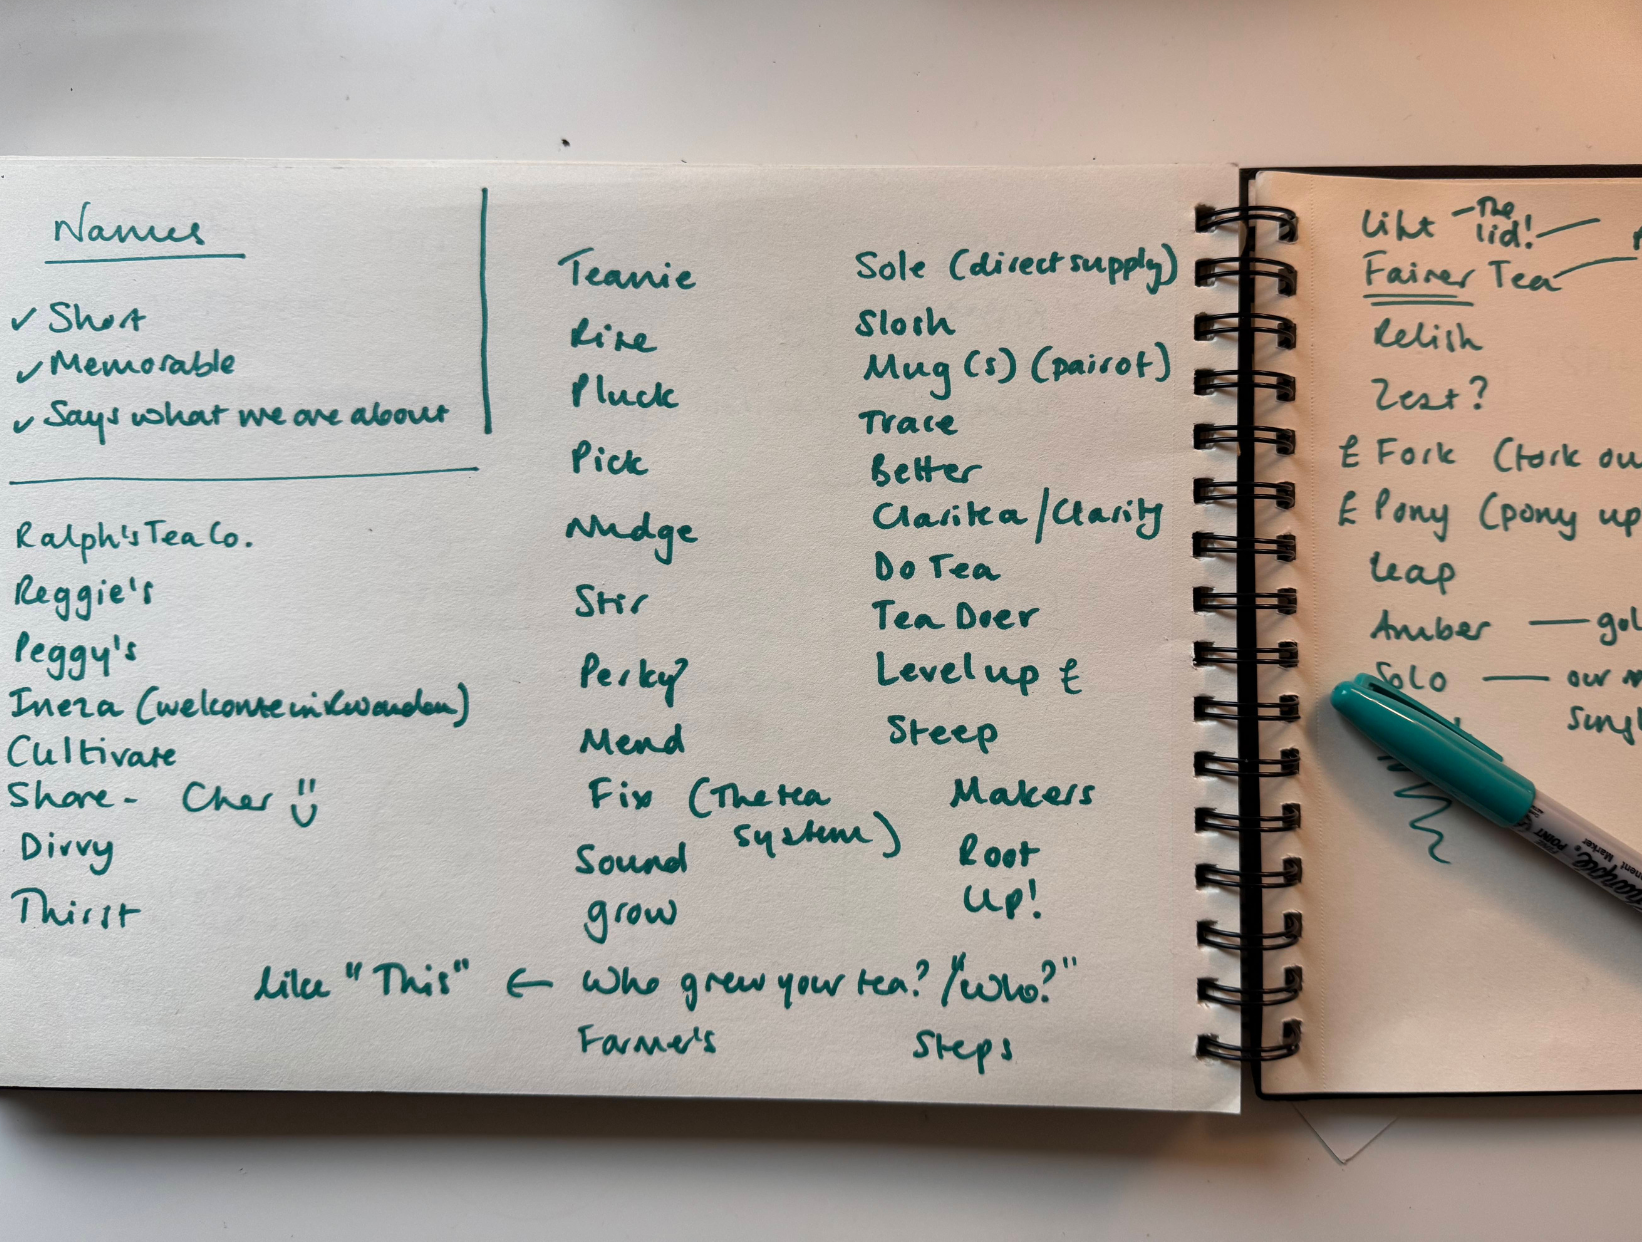 Names
✓ Short
✓ Memorable
✓ Says what we are about
Ralph's Tea Co.
Reggie's
Peggy's
Ineza (welcome in Rwandan)
Cultivate
Share - Cher
Divvy
Thirst
Teanie
Rise
Pluck
Pick
Nudge
Stir
Perky?
Mend
Fix (The tea
system)
Sound
grow
Sole (direct supply)
Slosh
Mug (s) (parrot)
Trace
Better
Claritea / Clarity
Do Tea
Tea Doer
Level up £
Steep
Makers
Root
Up!
like "This" ← Who grew your tea? / "Who?"
Farmer's
Steps
Lift - The
lid! -
Fairer Tea
Relish
Zest?
£ Fork (fork ou
£ Pony (pony up
Leap
Amber — gol
Solo — our
Sharpie
POINT